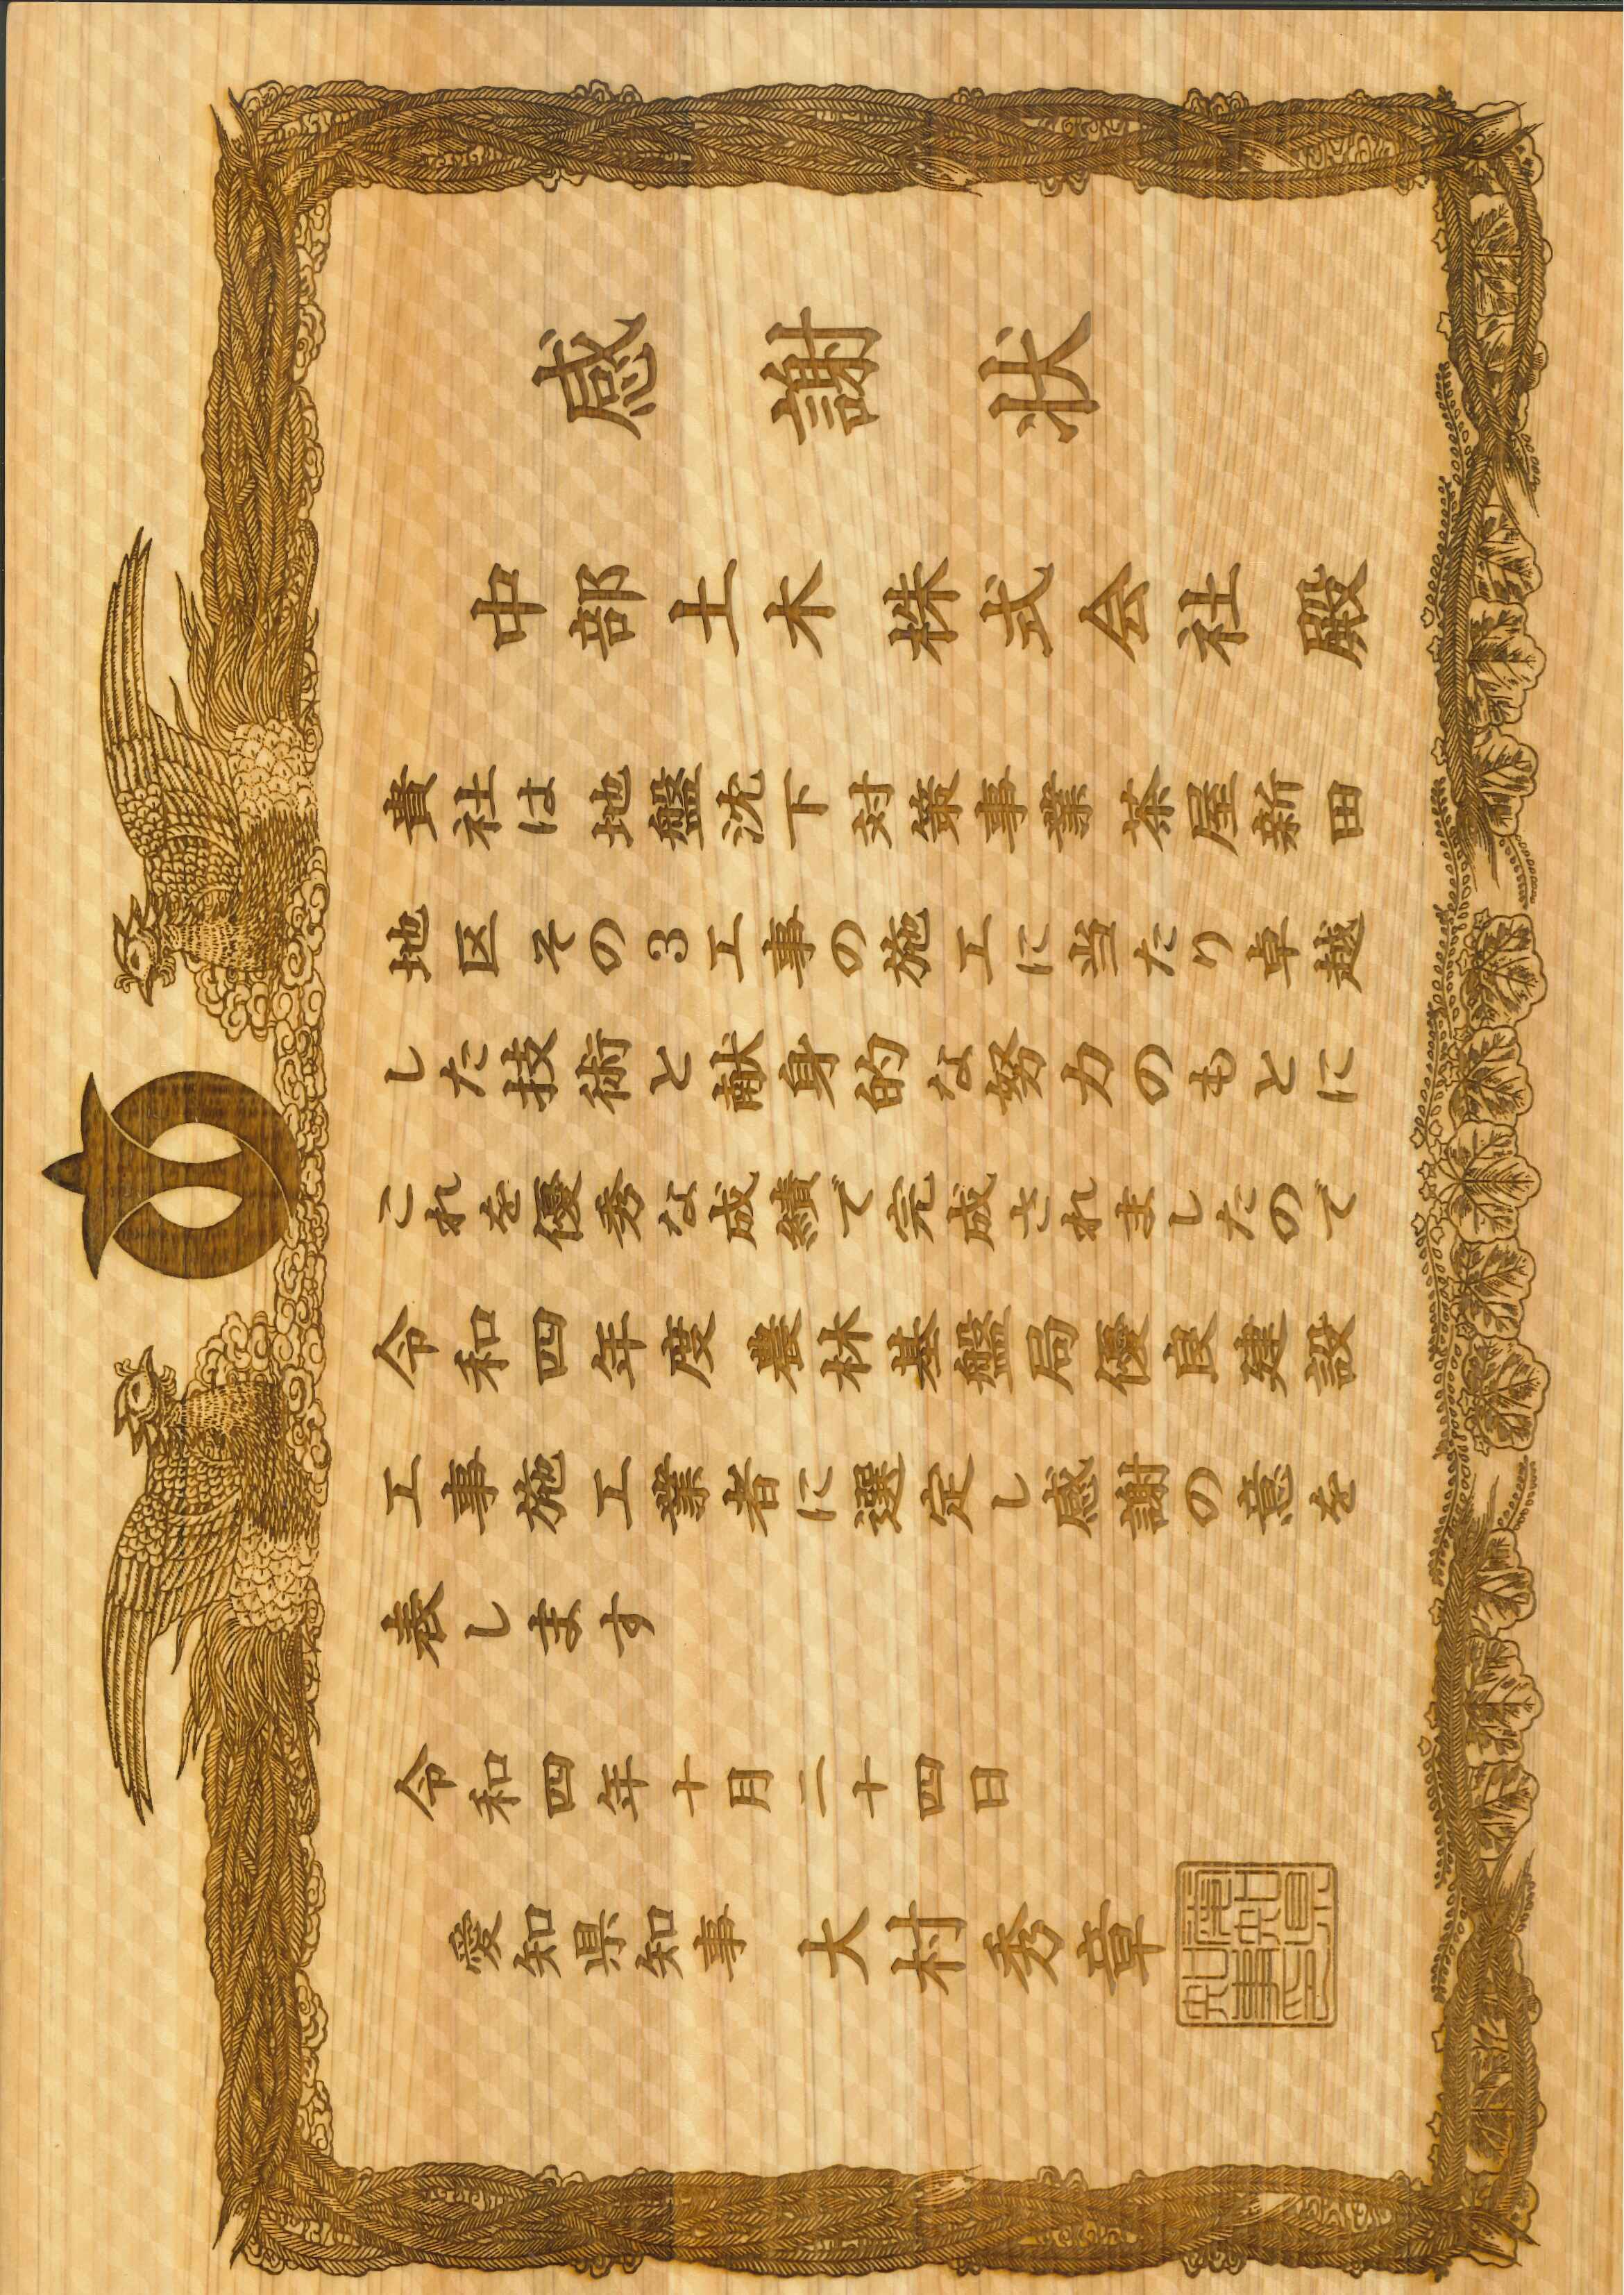 感謝状
中部土木株式会社 殿
貴社は地盤沈下対策事業茶屋新田
地区その3工事の施工に当たり卓越
した技術と献身的な努力のもとに
これを優秀な成績で完成されましたので
令和四年度農林基盤局優良建設
工事施工業者に選定し感謝の意を
表します
令和四年十月二十四日
愛知県知事 大村秀章
愛知県知事印